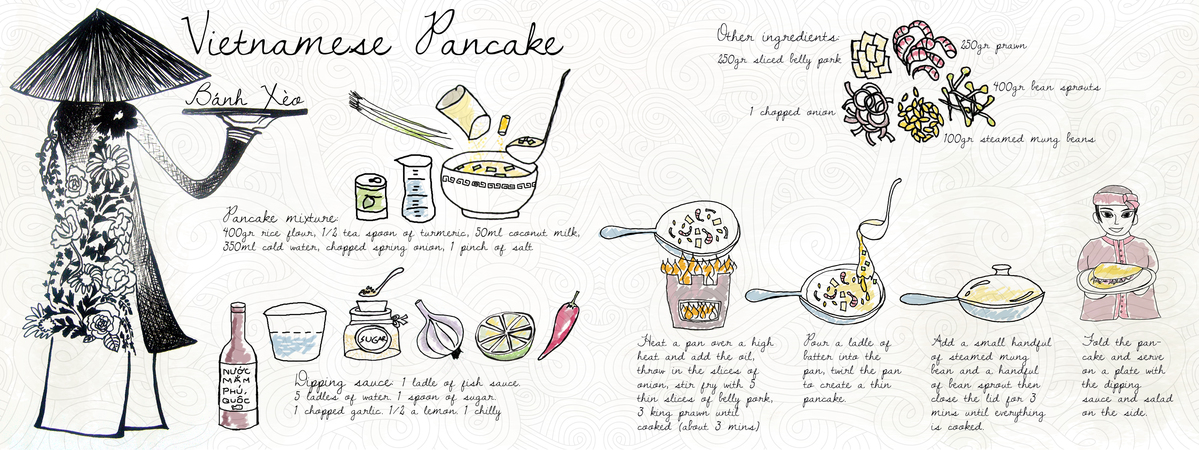 Vietnamese Pancake
Bánh Xèo
Pancake mixture:
400gr rice flour, 1/2 tea spoon of turmeric, 50ml coconut milk,
350ml cold water, chopped spring onion, 1 pinch of salt
SUGAR
NƯỚC
MẮM
PHÚ
QUỐC
Dipping sauce: 1 ladle of fish sauce.
5 ladles of water. 1 spoon of sugar.
1 chopped garlic. 1/2 a lemon. 1 chilly
Other ingredients:
250gr sliced belly pork
250gr prawn
400gr bean sprouts
1 chopped onion
100gr steamed mung beans
Heat a pan over a high
heat and add the oil,
throw in the slices of
onion, stir fry with 5
thin slices of belly pork,
3 king prawn until
cooked (about 3 mins)
Pour a ladle of
batter into the
pan, twirl the pan
to create a thin
pancake.
Add a small handful
of steamed mung
bean and a handful
of bean sprout then
close the lid for 3
mins until everything
is cooked.
Fold the pan-
cake and serve
on a plate with
the dipping
sauce and salad
on the side.